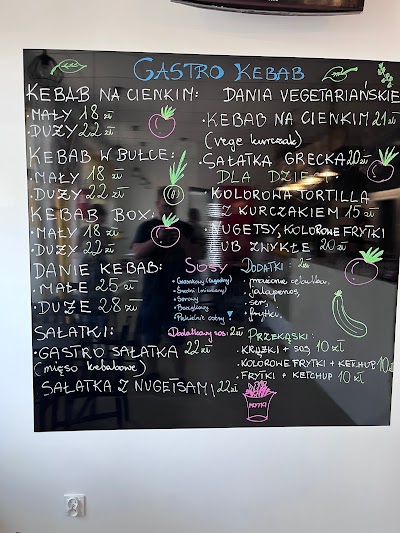 GASTRO KEBAB
KEBAB NA CIENKIM:
• MAŁY 18 zł
• DUŻY 22 zł
KEBAB W BUŁCE:
• MAŁY 18 zł
• DUŻY 22 zł
KEBAB BOX:
• MAŁY 18 zł
• DUŻY 22 zł
DANIE KEBAB:
• MAŁE 25 zł
• DUŻE 28 zł
SAŁATKI:
• GASTRO SAŁATKA 22 zł
(mięso kebabowe)
SAŁATKA Z NUGETSAMI 22 zł
SOSY
• Czosnkowy (łagodny)
• Średni (mieszany)
• Serowy
• Piekielnie ostry
Dodatkowy sos: 2 zł
DANIA VEGETARIAŃSKIE
• KEBAB NA CIENKIM 21 zł
(vege kurczak)
• SAŁATKA GRECKA 20 zł
DLA DZIECI
• KOLOROWA TORTILLA
Z KURCZAKIEM 15 zł
• NUGETSY, KOLOROWE FRYTKI
LUB ZWYKŁE 20 zł
DODATKI: 2 zł
• prażona cebulka,
• jalapenos,
• ser,
• frytki,
PRZEKĄSKI:
• KRĄŻKI + SOS 10 zł
• KOLOROWE FRYTKI + KETCHUP 10 zł
• FRYTKI + KETCHUP 10 zł
FRYTKI